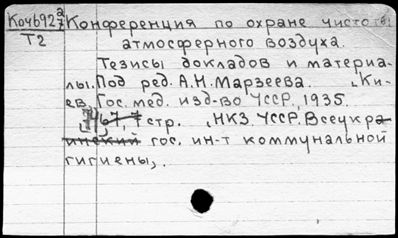 Коч692 а/7 Конференция по охране чистоты
Т2 атмосферного воздуха.
Тезисы докладов и материа-
лы. Под ред. А.Н. Марзеева. Ки-
ев, Гос. мед. изд-во УССР, 1935.
стр. НКЗ. УССР. Всеукра-
инский гос. ин-т коммунальной
гигиены,.